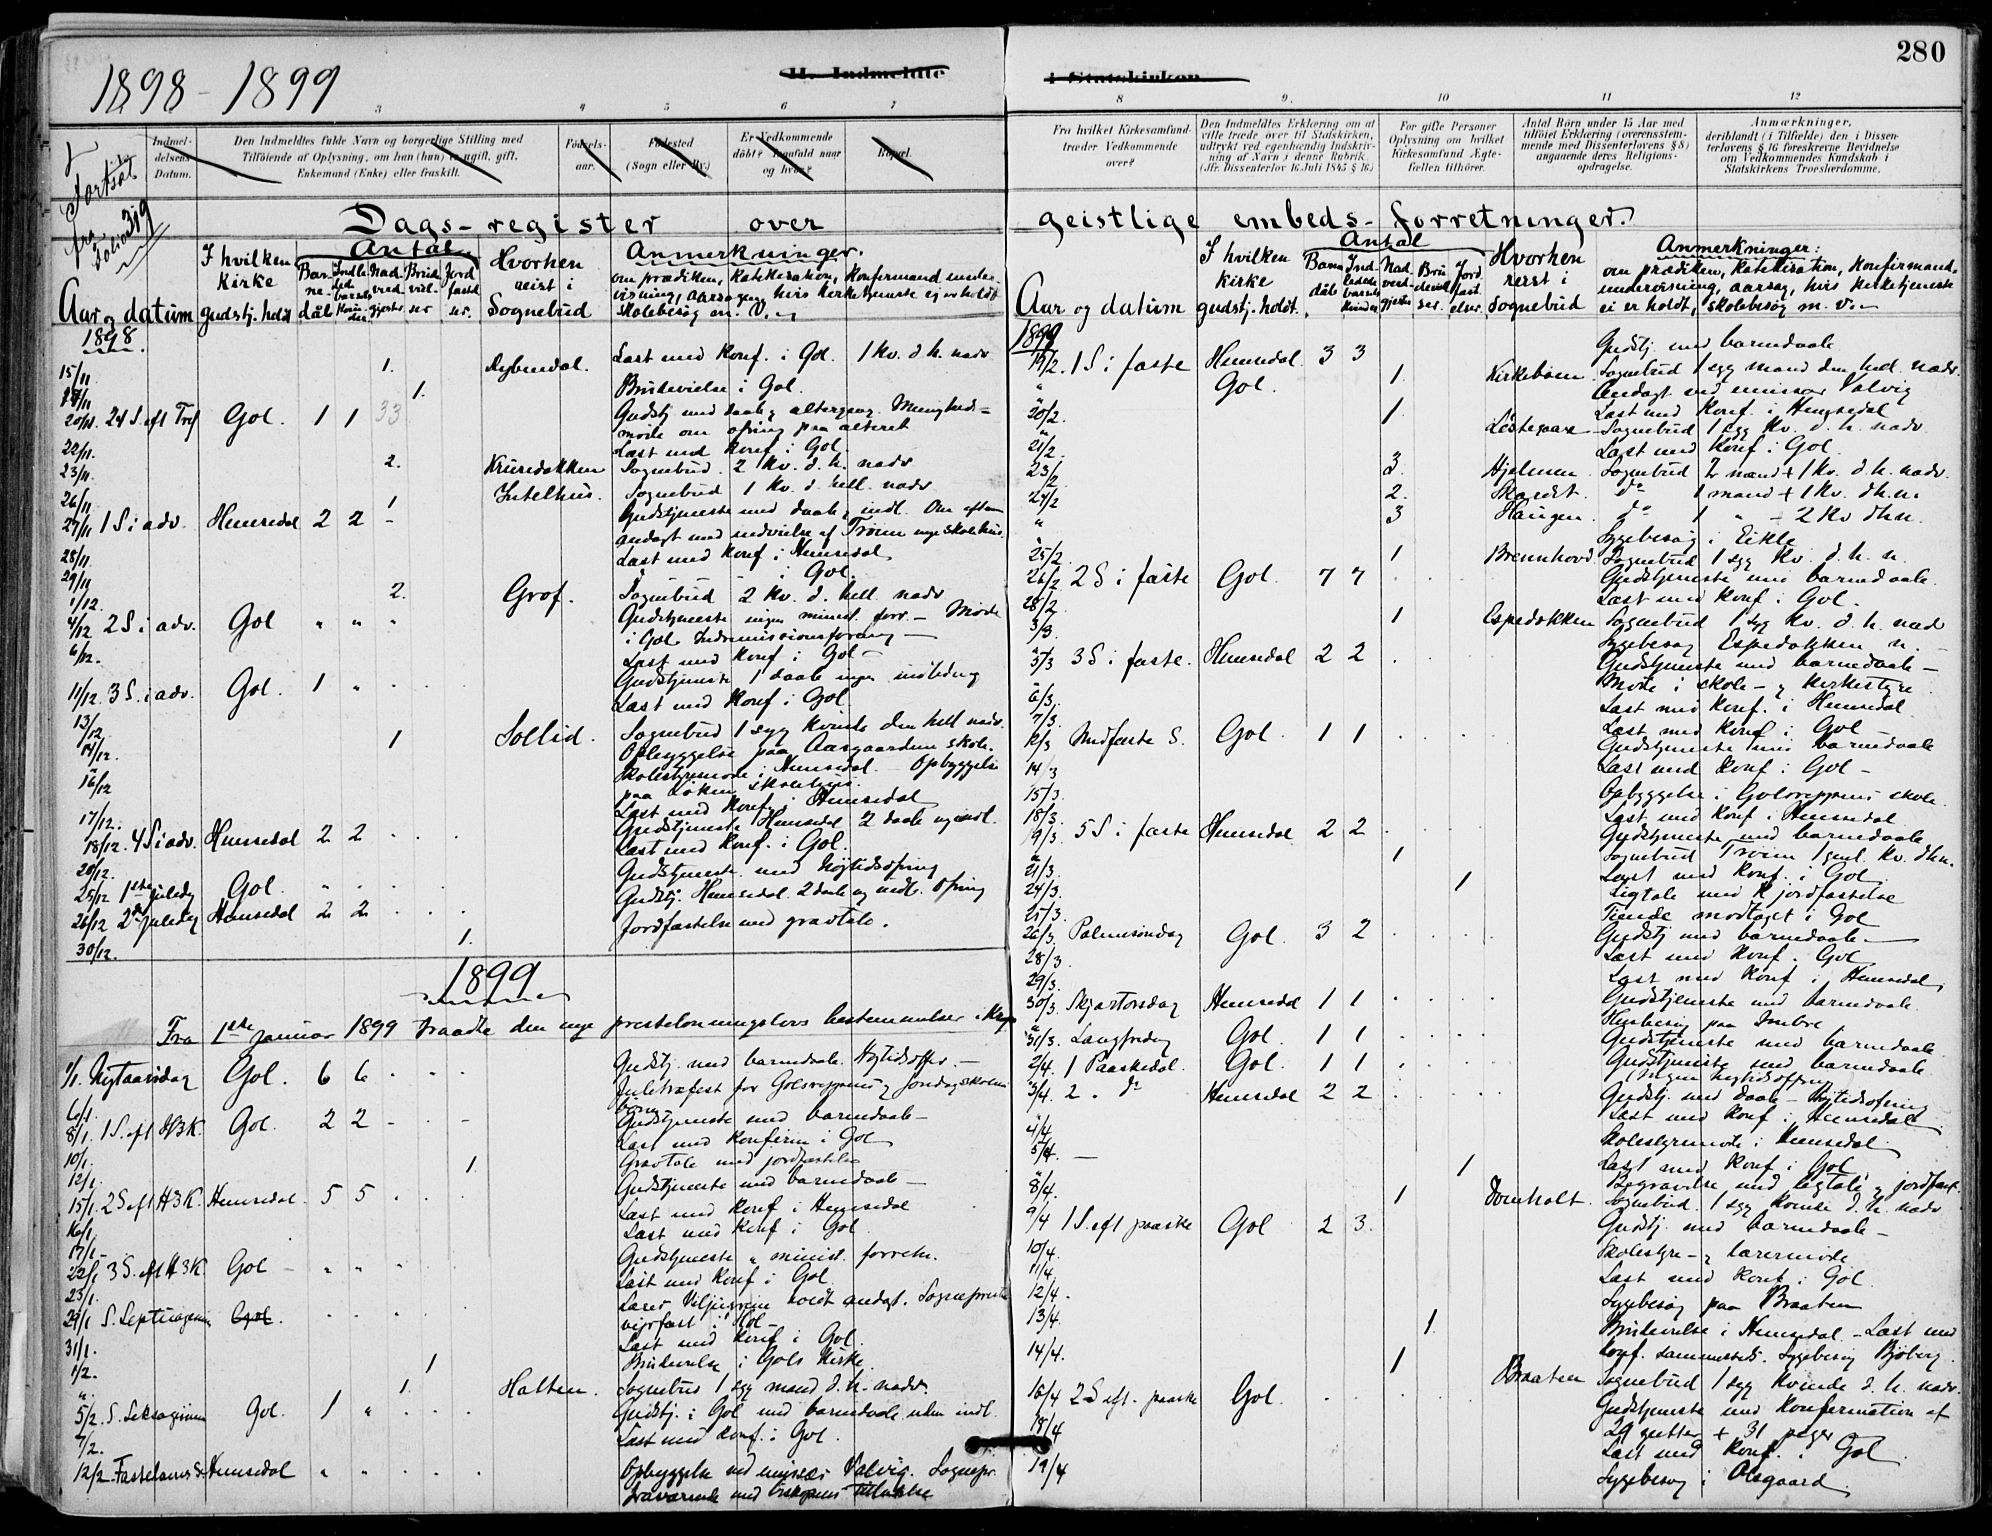 280
1898 - 1899
II. Indmeldte
i Statskirken
3 4 5 6 7
8 9. 10 11 12
Indmeldelsens Datum.
Den Indmeldtes fulde Navn og borgerlige Stilling med
Tilföiende af Oplysning, om han (hun) er ugift, gift,
Enkemand (Enke) eller fraskilt.
Födselsaar.
Födested
(Sogn eller By.)
Er Vedkommende
döbt? Ifald naar
og hvor?
Bopæl.
Fra hvilket Kirkesamfund
træder Vedkommende
over?
Den Indmeldtes Erklæring om at
ville træde over til Statskirken,
udtrykt ved egenhændig Indskrivning
af Navn i denne Rubrik.
(Jfr. Dissenterlov 16 Juli 1845 § 16.)
For gifte Personer
Oplysning om hvilket
Kirkesamfund Ægtefællen
tilhörer.
Antal Börn under 15 Aar med
tilföiet Erklæring (overensstemmende
med Dissenterlovens § 8)
angaaende deres Religionsopdragelse.
Anmærkninger,
deriblandt (i Tilfælde) den i Dissenterlovens
§ 16 foreskrevne Bevidnelse
om Vedkommendes Kundskab i
Statskirkens Troeslærdomme.
Fortsat fra folio 319
Dags-register over
geistlige embeds-forretninger.
Aar og datum
I hvilken kirke gudstj. holdt
Antal
Hvorhen reist i Sognebud
Anmerkninger.
om prædiken, Katekisation, Konfirmand undervisning, aarsag, hvis kirketjeneste ej er holdt
skolebesøg m. v.
1898.
15/11 1. Rybendal. Læst med Konf. i Gol. 1 Kv. d. h. nadv.
1. Brudevielse i Gol.
20/11 24 S. eft Tref Gol. 1 1 33 Gudstj med daab, altergang. Menighedsmøde om ofring paa alteret
22/11. Læst med Konf i Gol.
23/11. 2. Sognebud. 2 Kv. d. h. nadv
26/11 1 Sognebud 1 Kv. d. hell. nadv
27/11 1 S i adv. Hemsedal 2 2 - Gudstjeneste med daab, indl.
andagt med indvielse af Trøim nye skolehus.
28/11 Læst med Konf i Hemsedal
29/11 " i Gol.
1/12. 2. Grøf. Sognebud 2 Kv. d. hell nadv
4/12 2 S i adv. Gol " " " Gudstjeneste ingen minist. forr. - Møde
i Gol Indremissionsforening
6/12. Læst med Konf i Gol
11/12. 3 S. i adv. Gol. 1 " Gudstjeneste 1 daab ingen indledning
13/12 Læst med Konf i Gol
14/12. 1 Sollid. Sognebud 1 syg kvinde den hell nadv.
Opbyggelse paa Aasgaardene skole.
16/12 Skolestyremøde i Hemsedal - Opbyggelse
paa Løken skolehus.
17/12. Læst med Konf. i Hemsedal
18/12. 4 S i adv. Hemsedal 2 2 Gudstjeneste Hemsedal 2 daab og indl.
20/12. Læst med Konf. i Gol.
25/12 1ste juledag Gol. Gudstjeneste med Høytidsofring
26/12 2den juledag Hemsedal 2 2 Gudstj. Hemsedal 2 daab og indl. Ofring
30/12. 1. Jordfæstelse med gravtale.
1899
Fra 1ste januar 1899 traadte den nye prestelønningslovs bestemmelser i kraft
1/1. Nytaarsdag Gol. 6 6 Gudstj. med barnedaab. Høytidsoffer
6/1. Juletræfest for Golsreppens og søndagsskolens
børn
8/1. 1 S. eft H3K. Gol. 2 2 Gudstjeneste med barnedaab
10/1. Læst med Konfirm i Gol
12/1. 1. Gravtale med jordfæstelse
15/1. 2 S eft H3K. Hemsedal 5 5 Gudstjeneste med barnedaab
16/1. Læst med Konf i Hemsedal
17/1 Læst med Konf i Gol
22/1 3 S. eft H3K Gol Gudstjeneste " minist. forretn.
23/1. Læst med Konf i Gol.
29/1 S. Septuagesima Gol. Lærer Viljugrein holdt andagt. Sognepresten
veirfast i Gol
31/1. Læst med Konf i Gol.
1/2. 1 Brudevielse i Gols Kirke
" 1. Halten. Sognebud 1 syg mand d. h. nadv.
5/2. S. Seksagesima Gol. 1 " Gudstj. i Gol med barnedaab uden indl.
7/2. Læst med Konf. i Gol.
12/2 Fastelavns S. Hemsedal Opbyggelse ved emissær Valvig. Sognepr.
fraværende med biskopens tilladelse
Aar og datum
I hvilken kirke gudstj. holdt.
Antal
Hvorhen reist i Sognebud
Anmerkninger:
om prædiken, Katekisation, Konfirmandundervisning, aarsag, hvis kirketjeneste
ei er holdt, skolebesøg m. v.
1899
19/2. 1 S i faste Hemsedal 3 3 Gudstj med barnedaab
" Gol. 1. Kirkebøen Sognebud 1 syg mand den hel. nadv.
Andagt ved emissær Valvig
20/2. Læst med Konf. i Hemsedal
" 1. Sognebud 1 syg Kv. d. h. nadv
21/2. Læst med Konf i Gol
23/2 3. Hjelmen Sognebud 2 mænd + 1 Kv. d. h. nadv.
24/2 2. do 1 mand + 1 Kv. dh.n.
" 3 Haugen. do 1 " - 2 Kv dh.n.
Sygebesøg i Eikle
25/2. 1 Brennhovd Sognebud 1 syg Kv d. h. n.
26/2 2 S i faste Gol. 7 7 Gudstjeneste med barnedaab.
28/2. Læst med Konf i Gol.
3/3. 1 Espedokken Sognebud 1 syg Kv. d. h. nadv
Sygebesøg Espedokken n.
5/3 3 S i faste. Hemsedal 2 2 Gudstjeneste med barnedaab
Møde i skole- og kirkestyre
6/3. Læst med Konf. i Hemsedal
7/3. Læst med Konf i Gol
12/3 Midfaste S. Gol. 1 1 Gudstjeneste med barnedaab
14/3 Læst med Konf i Gol
15/3. Opbyggelse i Golsreppens skole
18/3. Læst med Konf i Hemsedal
19/3. 5 S i faste Hemsedal 2 2 Gudstjeneste med barnedaab
" 1 Sognebud Trøim 1 gml. Kv. dhn.
21/3. Læst med Konf. i Gol
24/3. 1 Ligtale med jordfæstelse
25/3. Tiende modtaget i Gol
26/3. Palmesøndag Gol. 3 2 Gudstj med barnedaab.
28/3 Læst med Konf. Gol
29/3. Læst med Konf i Hemsedal
30/3 Skjærtorsdag Hemsedal 1 1 Gudstjeneste med barnedaab
31/3. Langfredag Gol. 1 1 Gudstjeneste med barnedaab
2/4. 1 Paaskedal. Gol. 1 1 Gudstjeneste med barnedaab
(Ingen høytidsofring)
3/4. 2. do Hemsedal 2 2 Gudstj. med daab - Høytidsofring
4/4 Læst med Konf. i Hemsedal
5/4. Skolestyremøde i Hemsedal
Læst med Konf i Gol
8/4. 1 Begravelse med ligtale og jordfæst.
9/4 1 S. eft paaske Gol 2 3. 1 Sognebud 1 syg Kvinde d. h. nadv
Gudstj. med barnedaab
10/4. Skolestyre- og lærermøde
11/4 Læst med Konf. i Gol
12/4. Sygebesøg paa Braaten
13/4. 1. Brudevielse i Hemsedal. - Læst med
14/4. Konf. sammesteds. Sygebesøg Bjøberg.
1 Braaten Sognebud 1 syg Kvinde d. h. nadv.
16/4 2 S eft. paaske Gol. Gudstjeneste med Konfirmation af
29 gutter + 31 piger
18/4 Læst med Konf. i Gol
19/4 Sygebesøg i Olsgaard